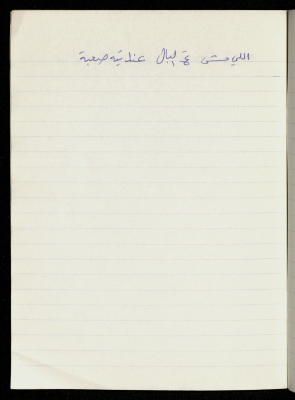 اللي مشى ع البال عندنيته صعبة